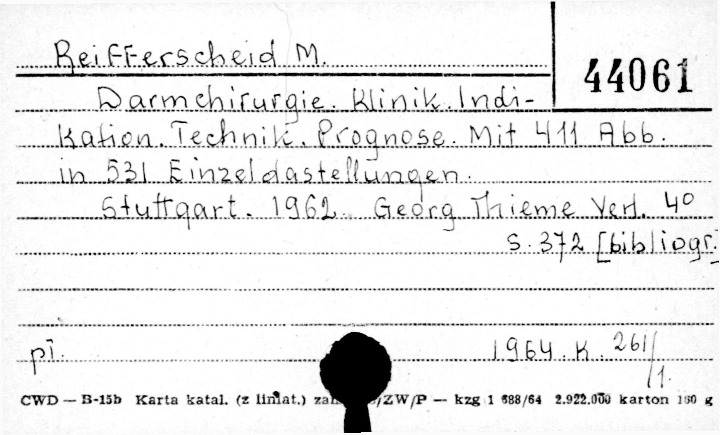 Reifferscheid M.
44061
Darmchirurgie. Klinik. Indi-
kation. Technik. Prognose. Mit 411 Abb.
in 531 Einzeldastellungen.
Stuttgart. 1962. Georg Thieme Verl. 4º
S. 372 [bibliogr.]
pł. 1964. K. 261/1.
CWD — B-15b Karta katal. (z liniat.) /ZW/P — kzg 1 688/64 2.922.000 karton 160 g